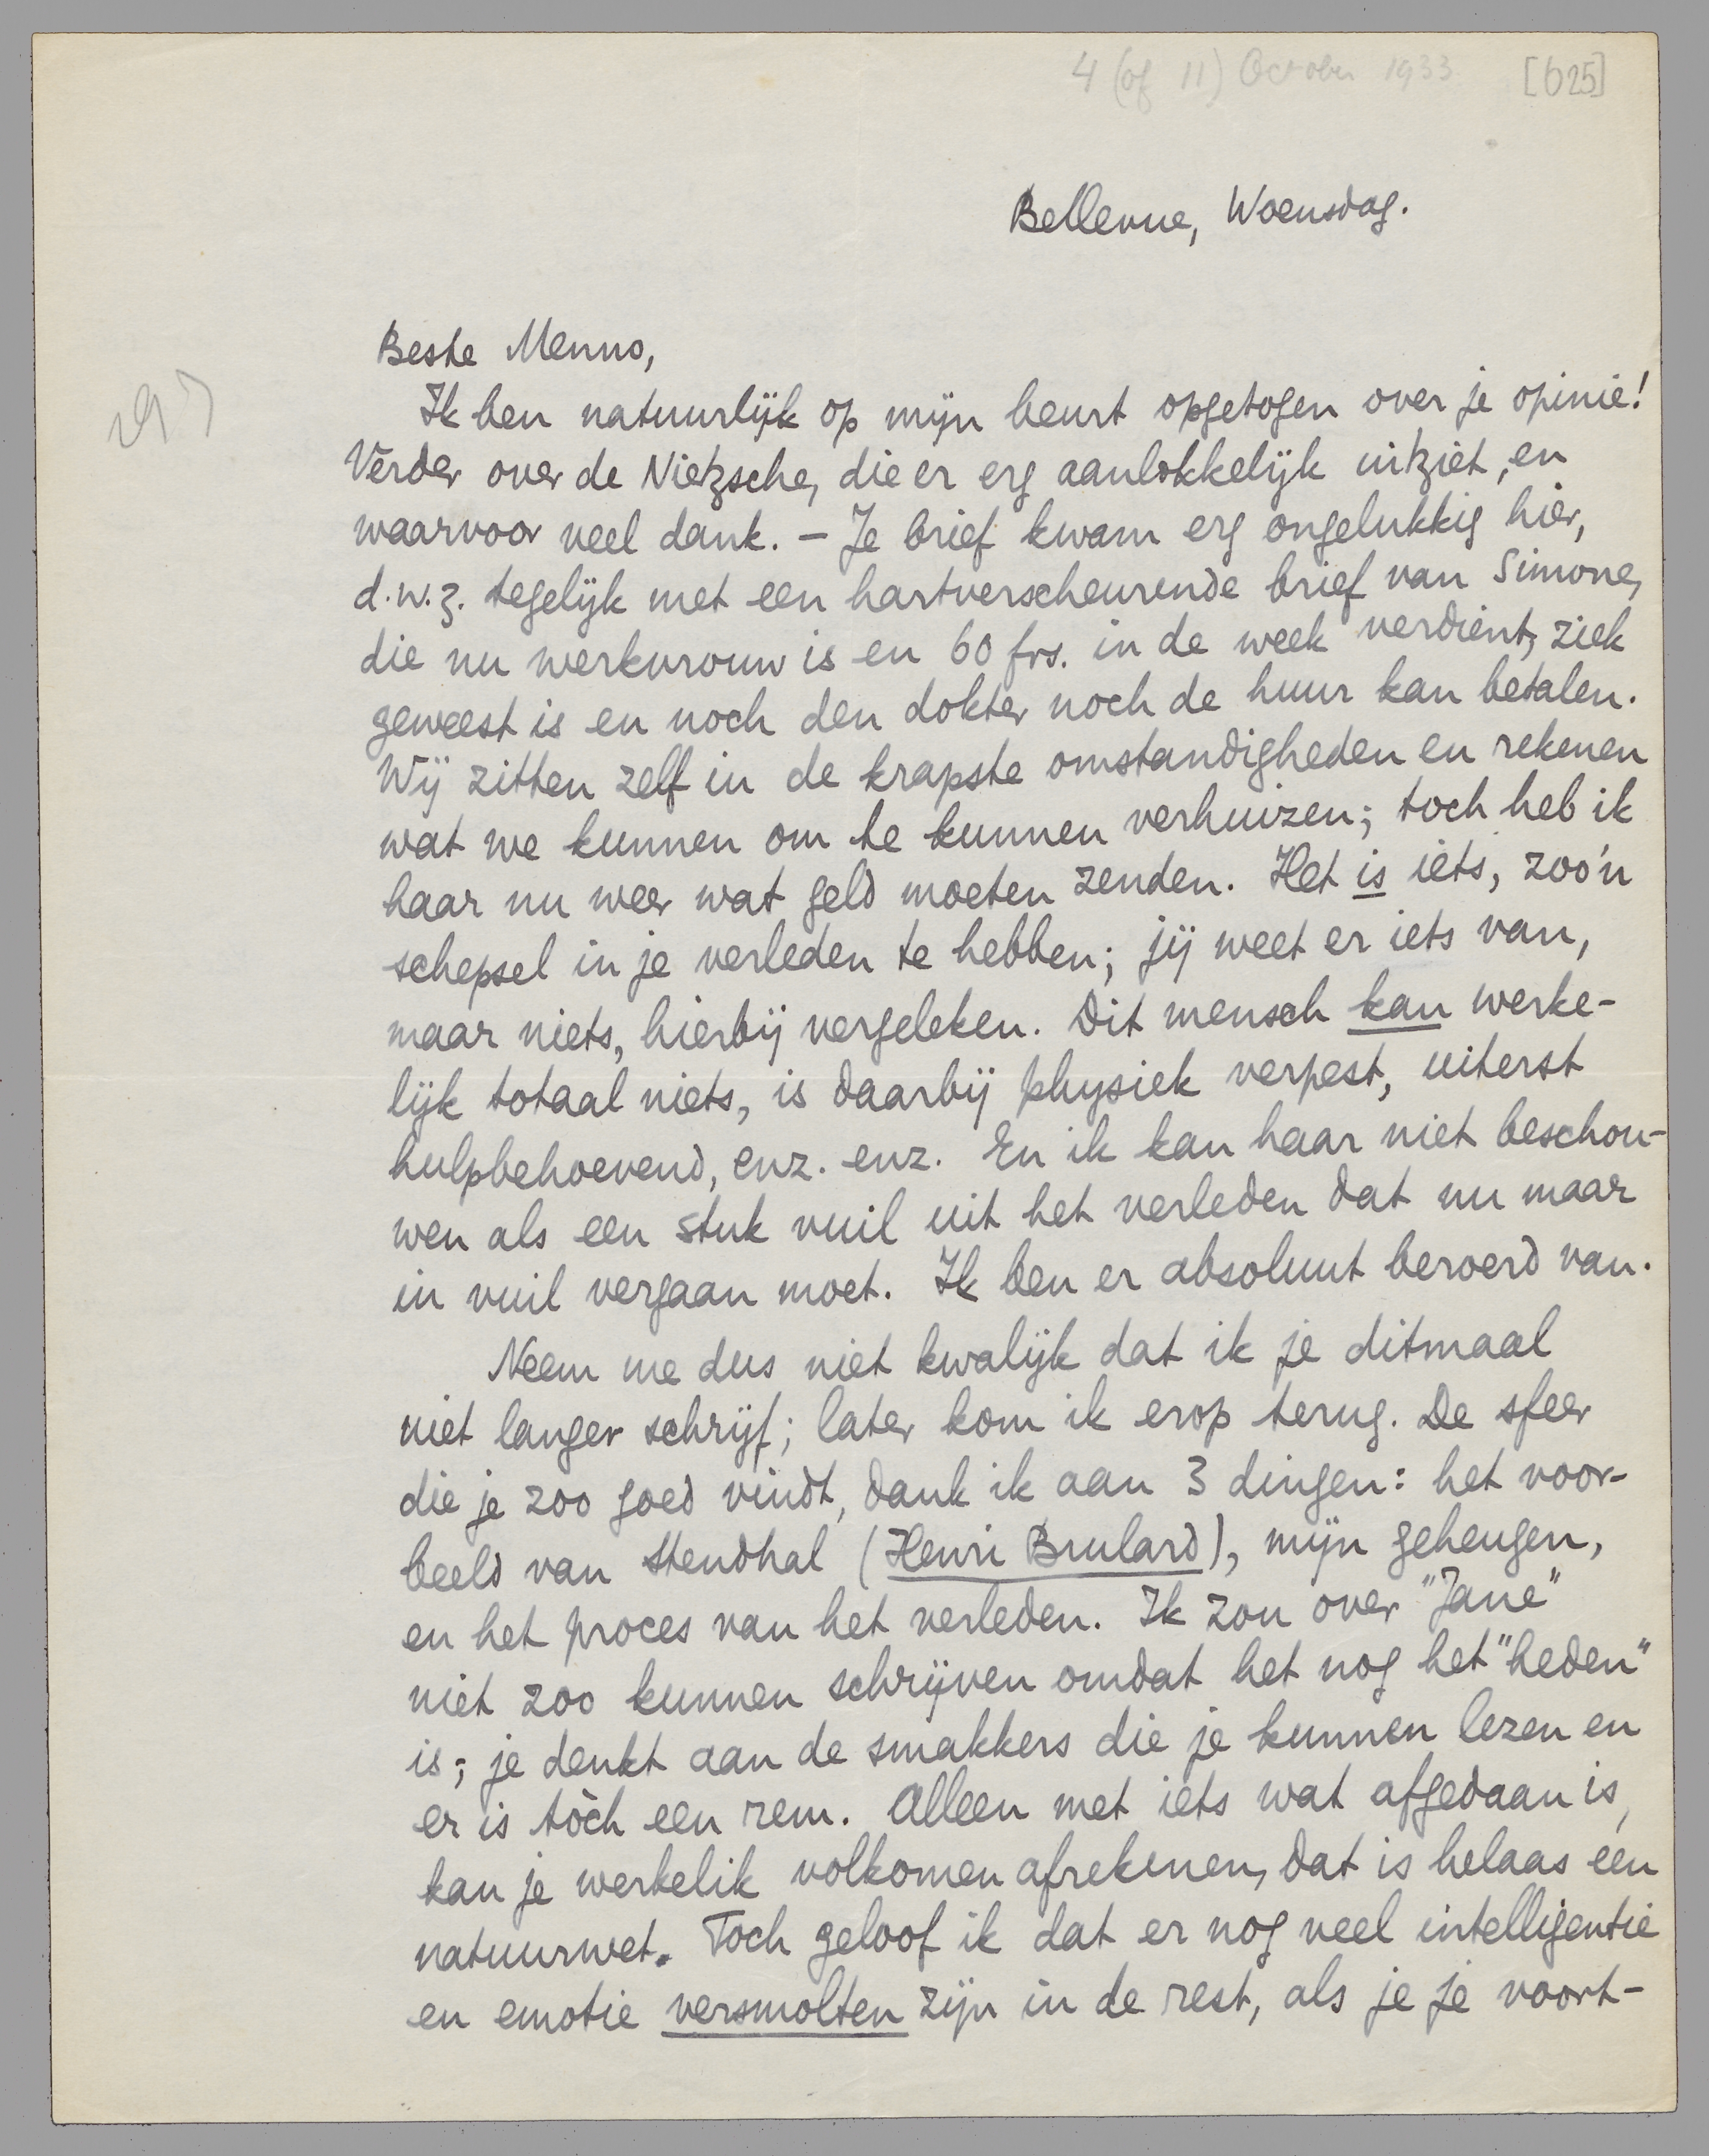 4 (of 11) October 1933 [625]
Bellevue, Woensdag.
Beste Menno,
Ik ben natuurlijk op mijn beurt opgetogen over je opinie!
Verder over de Nietzsche, die er erg aanlokkelijk uitziet, en
waarvoor veel dank. – Je brief kwam erg ongelukkig hier,
d.w.z. tegelijk met een hartverscheurende brief van Simone,
die nu werkvrouw is en 60 frs. in de week verdient, ziek
geweest is en noch den dokter noch de huur kan betalen.
Wij zitten zelf in de krapste omstandigheden en rekenen
wat we kunnen om te kunnen verhuizen; toch heb ik
haar nu weer wat geld moeten zenden. Het is iets, zoo'n
schepsel in je verleden te hebben; jij weet er iets van,
maar niets, hierbij vergeleken. Dit mensch kan werke-
lijk totaal niets, is daarbij physiek verpest, uiterst
hulpbehoevend, enz. enz. En ik kan haar niet beschou-
wen als een stuk vuil uit het verleden dat nu maar
in vuil vergaan moet. Ik ben er absoluut beroerd van.
Neem me dus niet kwalijk dat ik je ditmaal
niet langer schrijf; later kom ik erop terug. De sfeer
die je zoo goed vindt, dank ik aan 3 dingen: het voor-
beeld van Stendhal (Henri Brulard), mijn geheugen,
en het proces van het verleden. Ik zou over "Jane"
niet zoo kunnen schrijven omdat het nog het "heden"
is; je denkt aan de smakkers die je kunnen lezen en
er is tòch een rem. Alleen met iets wat afgedaan is,
kan je werkelik volkomen afrekenen, dat is helaas een
natuurwet. Toch geloof ik dat er nog veel intelligentie
en emotie versmolten zijn in de rest, als je je voort-